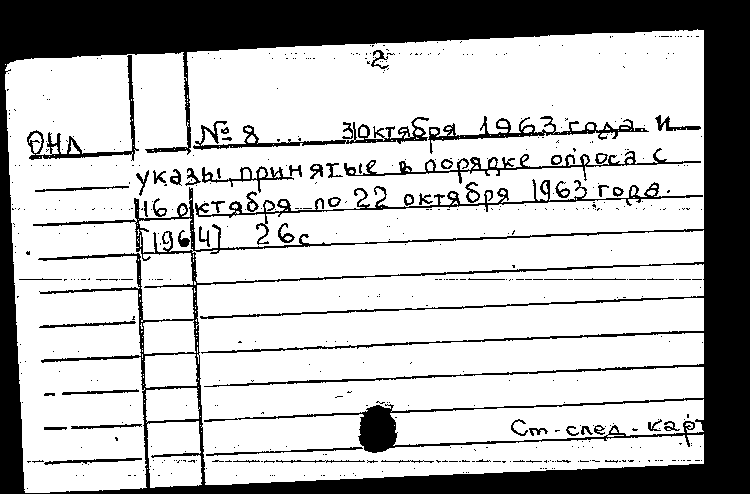 2
ОНЛ № 8 ... 3 октября 1963 года и
указы, принятые в порядке опроса с
16 октября по 22 октября 1963 года.
[1964] 26с
Ст-след.карт